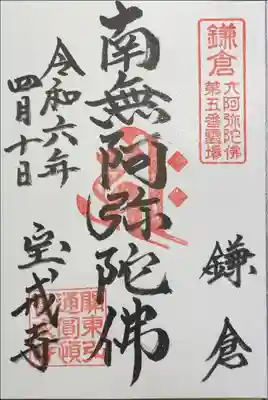 鎌倉
六阿弥陀佛
第五番靈場
鎌倉
南無阿弥陀佛
令和六年
四月十日
宝戒寺
關東弘
通圓頓